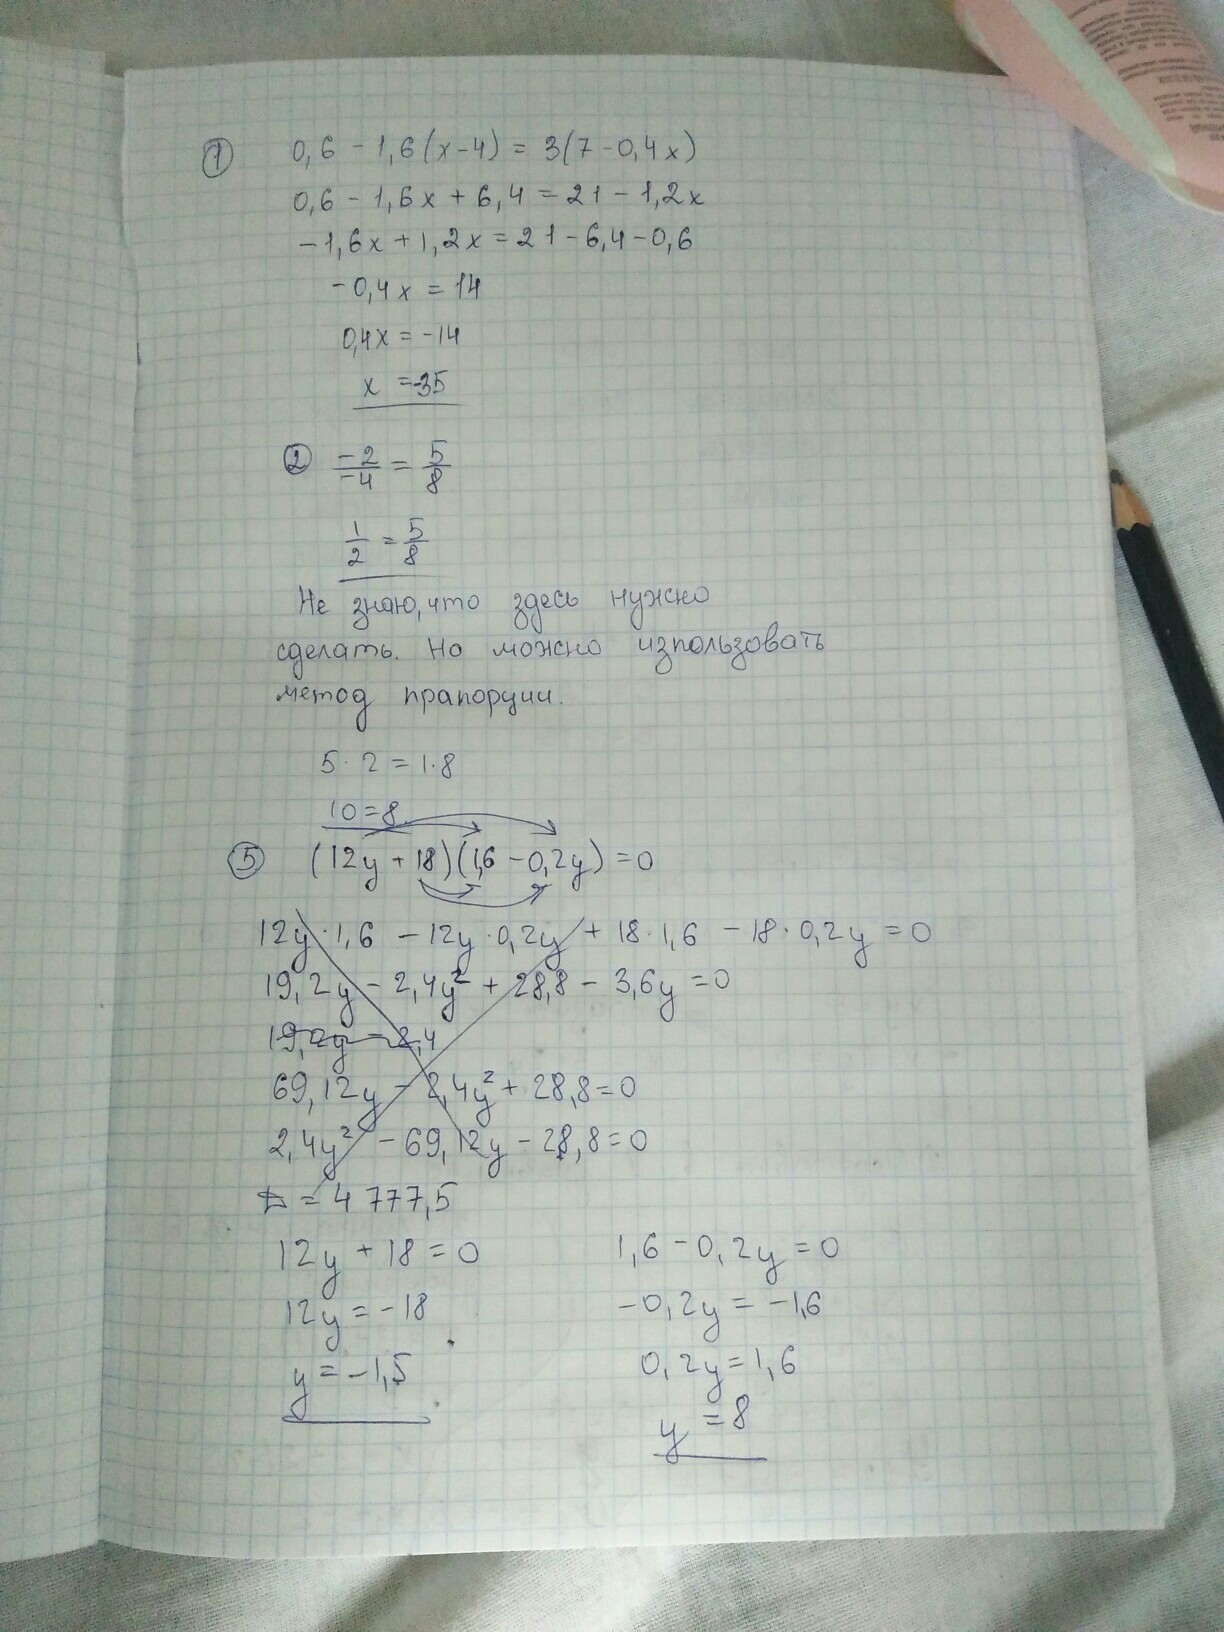 ① 0,6 - 1,6(x-4) = 3(7-0,4x)
0,6 - 1,6x + 6,4 = 21 - 1,2x
-1,6x + 1,2x = 21 - 6,4 - 0,6
-0,4x = 14
0,4x = -14
x = -35
② -2/-4 = 5/8
1/2 = 5/8
Не знаю, что здесь нужно
сделать. Но можно изпользовать
метод прапорции.
5·2 = 1·8
10=8
⑤ (12y + 18)(1,6 - 0,2y) = 0
12y·1,6 - 12y·0,2y + 18·1,6 - 18·0,2y = 0
19,2y - 2,4y² + 28,8 - 3,6y = 0
19,2y - 2,4
69,12y - 2,4y² + 28,8 = 0
2,4y² - 69,12y - 28,8 = 0
D = 4 777,5
12y + 18 = 0 1,6 - 0,2y = 0
12y = -18 -0,2y = -1,6
y = -1,5 0,2y = 1,6
y = 8